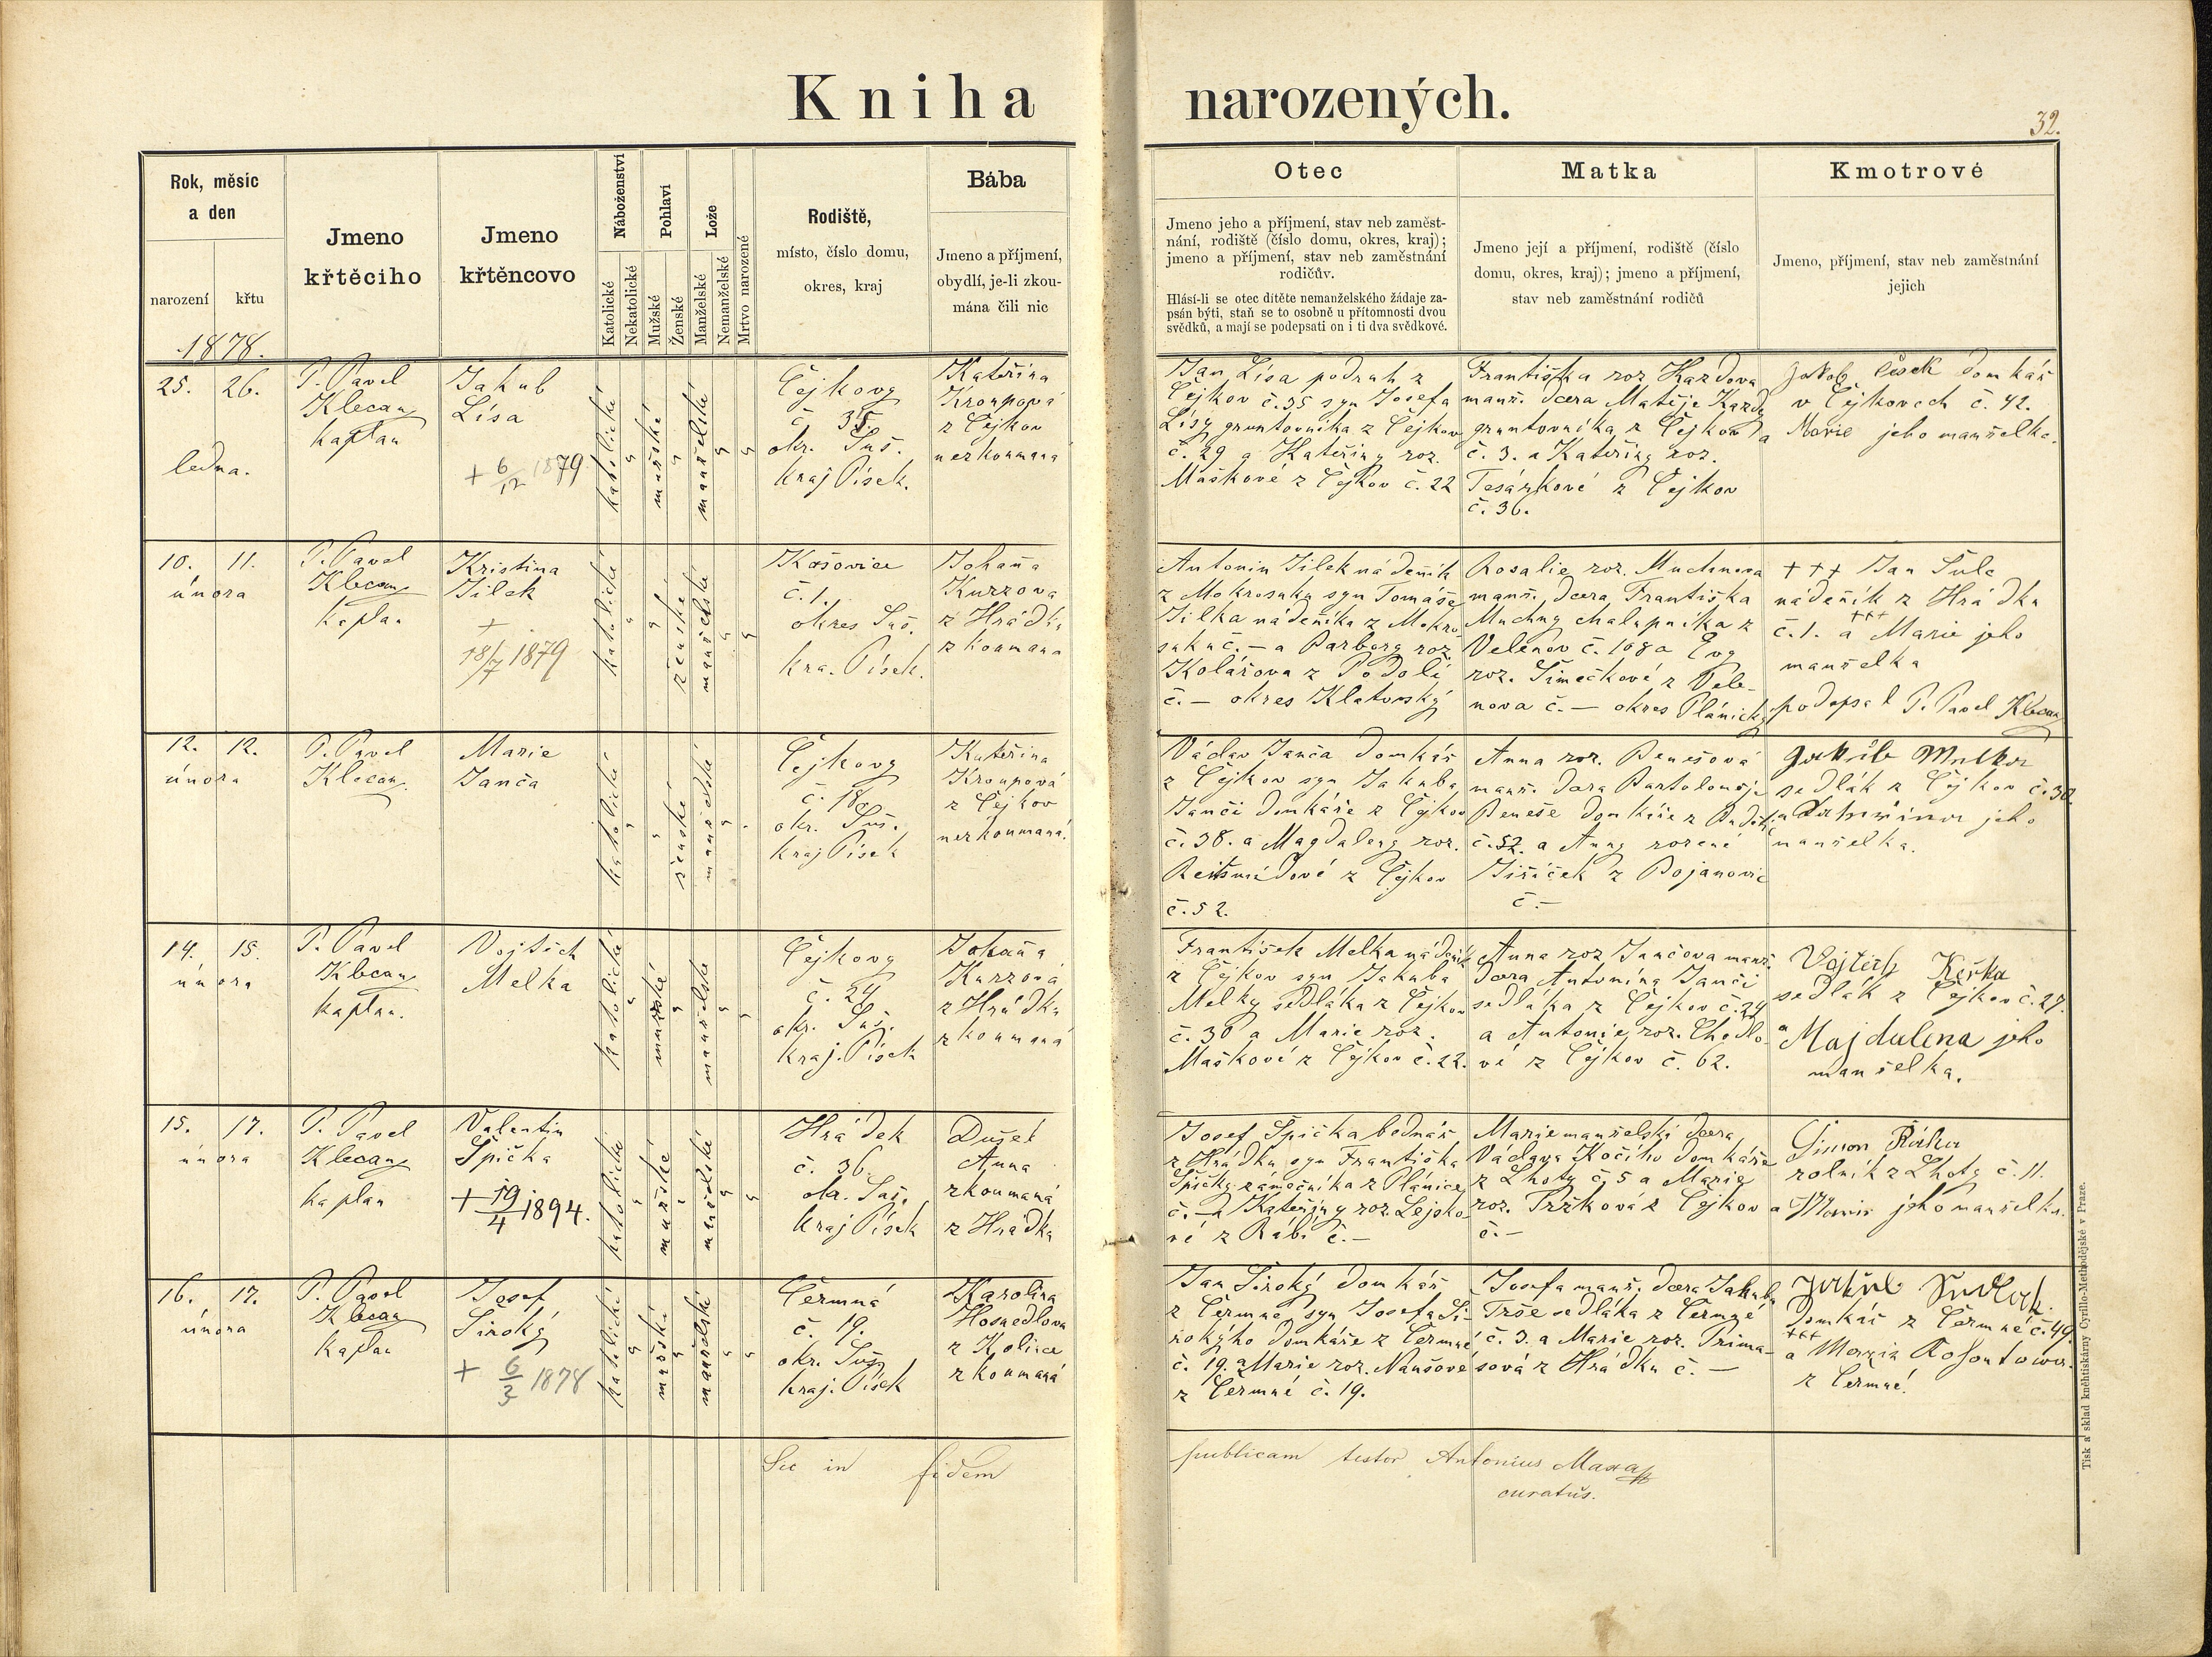 Kniha narozených.
32.
Rok, měsíc
a den
narození
křtu
1878.
Jmeno
křtěcího
Jmeno
křtěncovo
Náboženství
Katolické
Nekatolické
Pohlaví
Mužské
Ženské
Lože
Manželské
Nemanželské
Mrtvo narozené
Rodiště,
místo, číslo domu,
okres, kraj
Bába
Jmeno a příjmení,
obydlí, je-li zkou-
mána čili nic
Otec
Jmeno jeho a příjmení, stav neb zaměst-
nání, rodiště (číslo domu, okres, kraj);
jmeno a příjmení, stav neb zaměstnání
rodičův.
Hlásí-li se otec dítěte nemanželského žádaje za-
psán býti, staň se to osobně u přítomnosti dvou
svědků, a mají se podepsati on i ti dva svědkové.
Matka
Jmeno její a příjmení, rodiště (číslo
domu, okres, kraj); jmeno a příjmení,
stav neb zaměstnání rodičů
Kmotrové
Jmeno, příjmení, stav neb zaměstnání
jejich
25. 26.
ledna.
P. Pavel
Klecan
kaplan
Jakub
Lísa
+ 6/12 1879
katolické
mužské
manželské
Čejkovy
č 35
okr. Suš.
kraj Písek.
Kateřina
Kroupová
z Čejkov
nezkoumaná
Jan Lísa podruh z
Čejkov č. 35 syn Josefa
Lísy gruntovníka z Čejkov
č. 29 a Kateřiny roz.
Maškové z Čejkov č. 22
Františka roz Kazdova
manž. dcera Matěje Kazdy
gruntovníka z Čejkov
č. 3. a Kateřiny roz.
Tesárkové z Čejkov
č. 36.
Jakob Císek domkář
v Čejkovech č. 42.
a Marie jeho manželka.
10. 11.
února
P. Pavel
Klecan
kaplan
Kristina
Jilek
+
18/7 1879
katolické
ženské
manželské
Kašovice
č. 1.
okres Suš.
kra. Písek.
Johana
Kurzova
z Hrádku
zkoumana
Antonin Jilek nádeník
z Mokrosuku syn Tomáše
Jilka nádeníka z Mokro-
suku č. — a Barbory roz.
Kolářova z Podolí
č. — okres Klatovský
Rosalie roz. Muchnova
manž. dcera Františka
Muchny chalupníka z
Velenov č. 168 a Evy
roz. Šimečkové z Vele-
nova č. — okres Plánický
+++ Jan Šulc
nádeník z Hrádku
č. 1. a +++ Marie jeho
manželka
podepsal P. Pavel Klecan
12. 12.
února
P. Pavel
Klecan
Marie
Janča
katolické
ženské
manželské
Čejkovy
č. 18
okr. Suš.
kraj Písek
Kateřina
Kroupová
z Čejkov
nezkoumaná.
Václav Janča domkář
z Čejkov syn Jakuba
Janči domkáře z Čejkov
č. 38. a Magdaleny roz.
z Čejkov
č. 52.
Anna roz. Benešová
manž. dcera Bartoloměje
Beneše domkáře z
č. 52. a Anny rozené
Jiříček z Bojanovic
č. —
Jakub Melka
sedlák z Čejkov č. 30
a Katerina jeho
manželka.
14. 15.
února
P. Pavel
Klecan
kaplan.
Vojtěch
Melka
katolické
mužské
manželské
Čejkovy
č. 24
okr. Suš.
kraj. Písek
Johana
Kurzová
z Hrádku
zkoumaná
František Melka nádeník
z Čejkov syn Jakuba
Melky sedláka z Čejkov
č. 30 a Marie roz.
Maškové z Čejkov č. 22.
Anna roz Jančova manž.
dcera Antonína Janči
sedláka z Čejkov č. 24
a Antonie roz. Chodlo-
vé z Čejkov č. 62.
Vojtěch Keška
sedlák z Čejkov č. 27.
a Majdalena jeho
manželka.
15. 17.
února
P. Pavel
Klecan
kaplan
Valentin
Špička
+ 19/4 1894.
katolické
mužské
manželské
Hrádek
č. 36.
okr. Suš.
kraj Písek
Dušek
Anna
zkoumaná
z Hrádka
Josef Špička bednář
z Hrádku syn Františka
Špičky zámečníka z Plánice
č. — a Kateřiny roz. Lejsko-
vé z Rabí č. —
Marie manželská dcera
Václava Kočího domkáře
z Lhoty č. 5 a Marie
roz. Pržková z Čejkov
č. —
Šimon
rolník z Lhoty č. 11.
a Marie jeho manželka.
16. 17.
února
P. Pavel
Klecan
kaplan
Josef
Široký
+ 6/3 1878
katolické
mužské
manželské
Čermná
č. 19.
okr. Suš.
kraj. Písek
Karolina
Hosnedlova
z Kolince
zkoumaná
Jan Široký domkář
z Čermné syn Josefa Ši-
rokýho domkáře z Čermné
č. 19. a Marie roz. Nanšové
z Čermné č. 19.
Josefa manž. dcera Jakuba
Trše sedláka z Čermné
č. 3. a Marie roz. Prima-
sová z Hrádku č. —
Jakub Sedlák.
domkář z Čermné č. 49.
+++
a Marie
z Čermné.
Sic in fidem publicam testor Antonius Maxa
curatus.
Tisk a sklad kněhtiskárny Cyrillo-Methodějské v Praze.